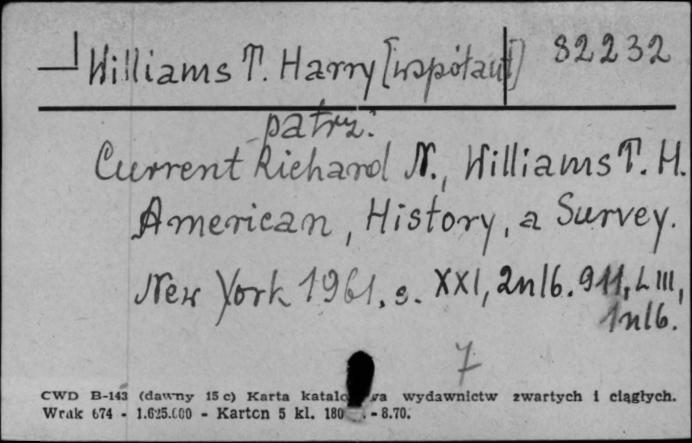 Williams T. Harry [współaut] 82232
patrz:
Current Richard N., Williams T. H.
American, History, a Survey.
New York 1961, s. XXI, 2nlb. 911, LIII,
1nlb.
7
CWD B-143 (dawny 15 c) Karta wydawnictw zwartych i ciągłych.
Wrak 674 - 1.625.000 - Karton 5 kl. 180 - 8.70.